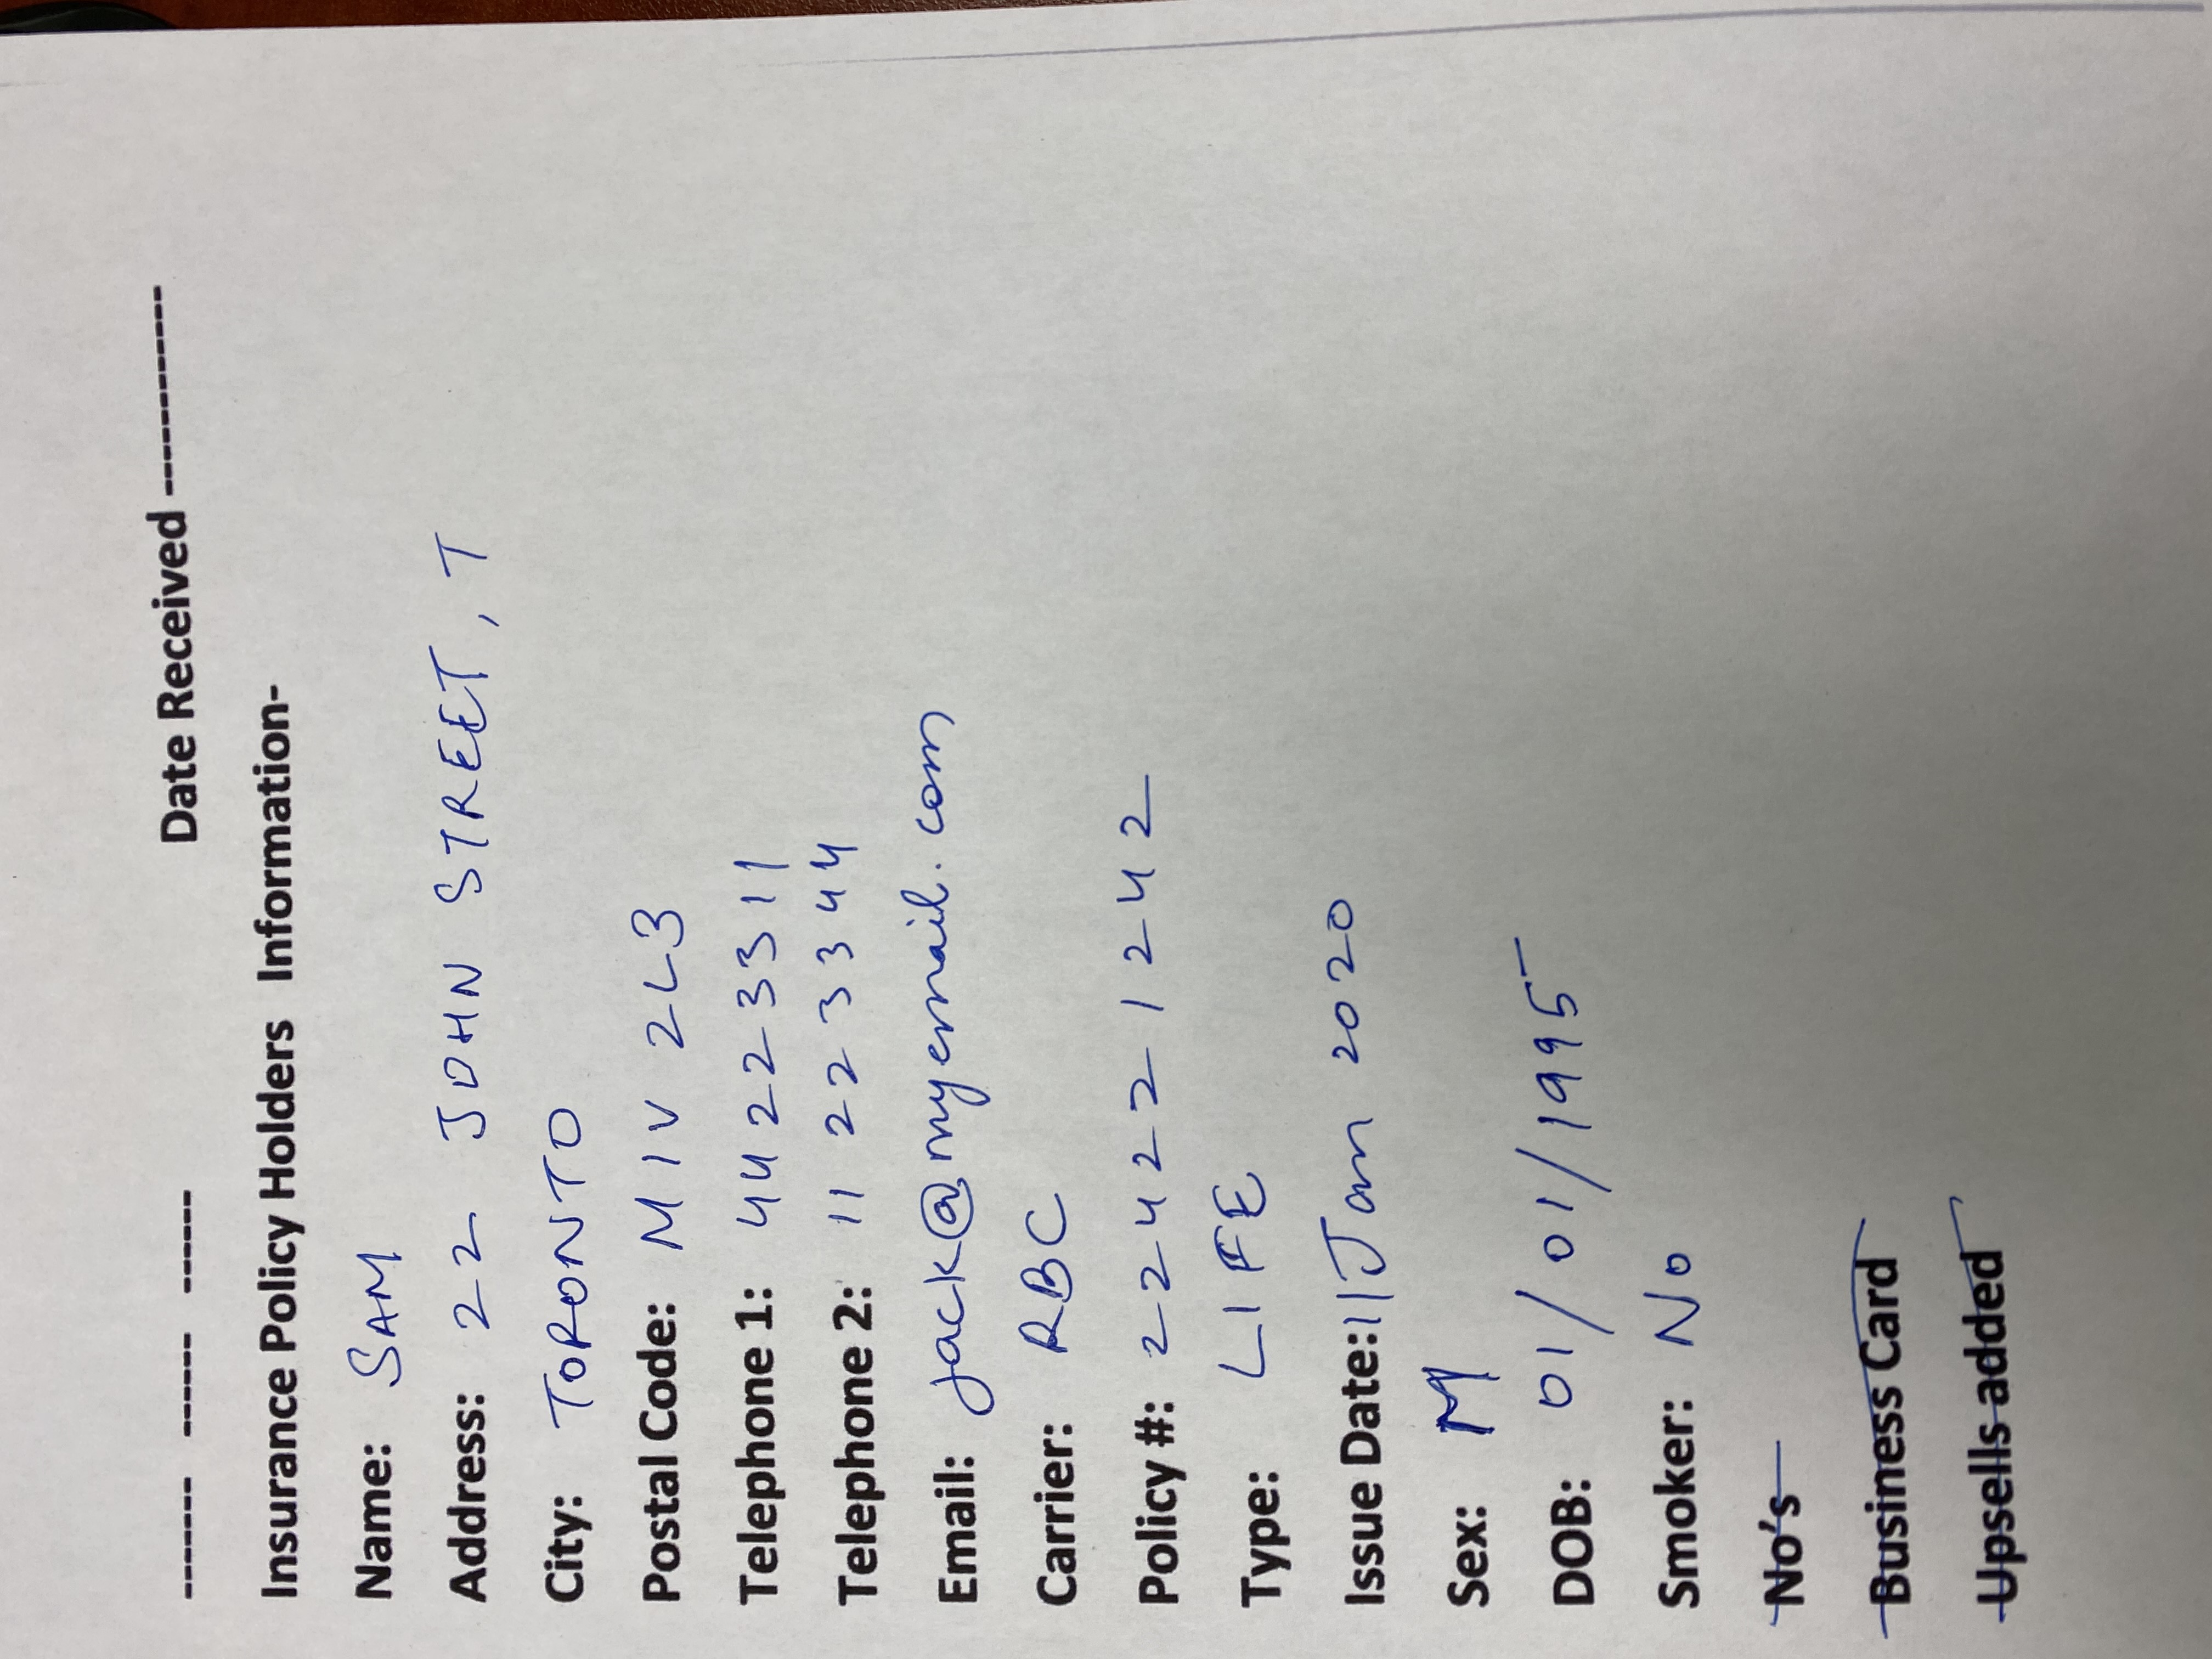 ------- ------ ------ Date Received ------------
Insurance Policy Holders Information-
Name: SAM
Address: 22 JOHN STREET, T
City: TORONTO
Postal Code: M1V 2L3
Telephone 1: 44223311
Telephone 2: 11 223344
Email: jack@myemail.com
Carrier: RBC
Policy #: 224221242
Type: LIFE
Issue Date: 11 Jan 2020
Sex: M
DOB: 01/01/1995
Smoker: No
No's
Business Card
Upsells added